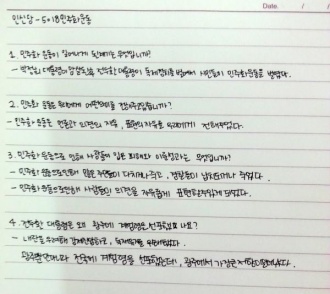 Date.
민신당 - 5018민주화운동
1. 민주화 운동이 일어나게 된계기는 무엇입니까?
- 박정희 대통령이 암살된후 전두환 대통령이 독재정치를 범해서 시민들이 민주화운동을 벌였다.
2. 민주화 운동은 우리에게 어떤의의를 전해주었습니까?
- 민주화 운동은 언론과 의견의 자유, 표현의자유를 우리에게 전해주었다.
3. 민주화 운동으로 인해 사람들이 입은 피해와 이로운점은 무엇입니까?
- 민주화 운동으로인해 많은 시민들이 다치거나 죽고, 행방불명 납치되거나 죽었다.
- 민주화 운동으로인해 사람들의 의견을 자유롭게 표현할수있게 되었다.
4. 전두환 대통령은 왜 광주에 계엄령을 선포했었나요?
- 내란을 우려해 강제진압하고, 독재정치를 위해서였다.
광주뿐만아니라 전국에 계엄령을 선포했는데, 광주에서 가장큰 저항이일어났다.